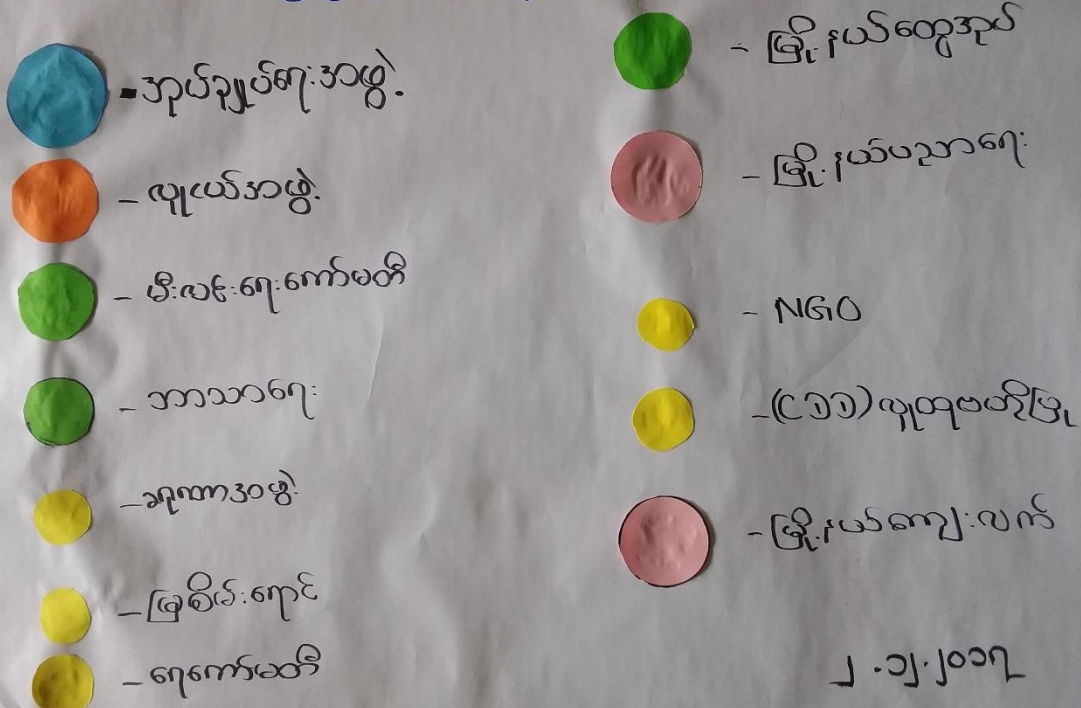 အုပ်ချုပ်ရေးအဖွဲ့
- လူငယ်အဖွဲ့
- မီးလင်းရေးကော်မတီ
- ဘာသာရေး
- ခရုဏာအဖွဲ့
- မြစိမ်းရောင်
- ရေကော်မတီ
- မြို့နယ်ထွေအုပ်
- မြို့နယ်ပညာရေး
- NGO
- (CDD) လူထုဗဟိုပြု
- မြို့နယ်ကျေးလက်